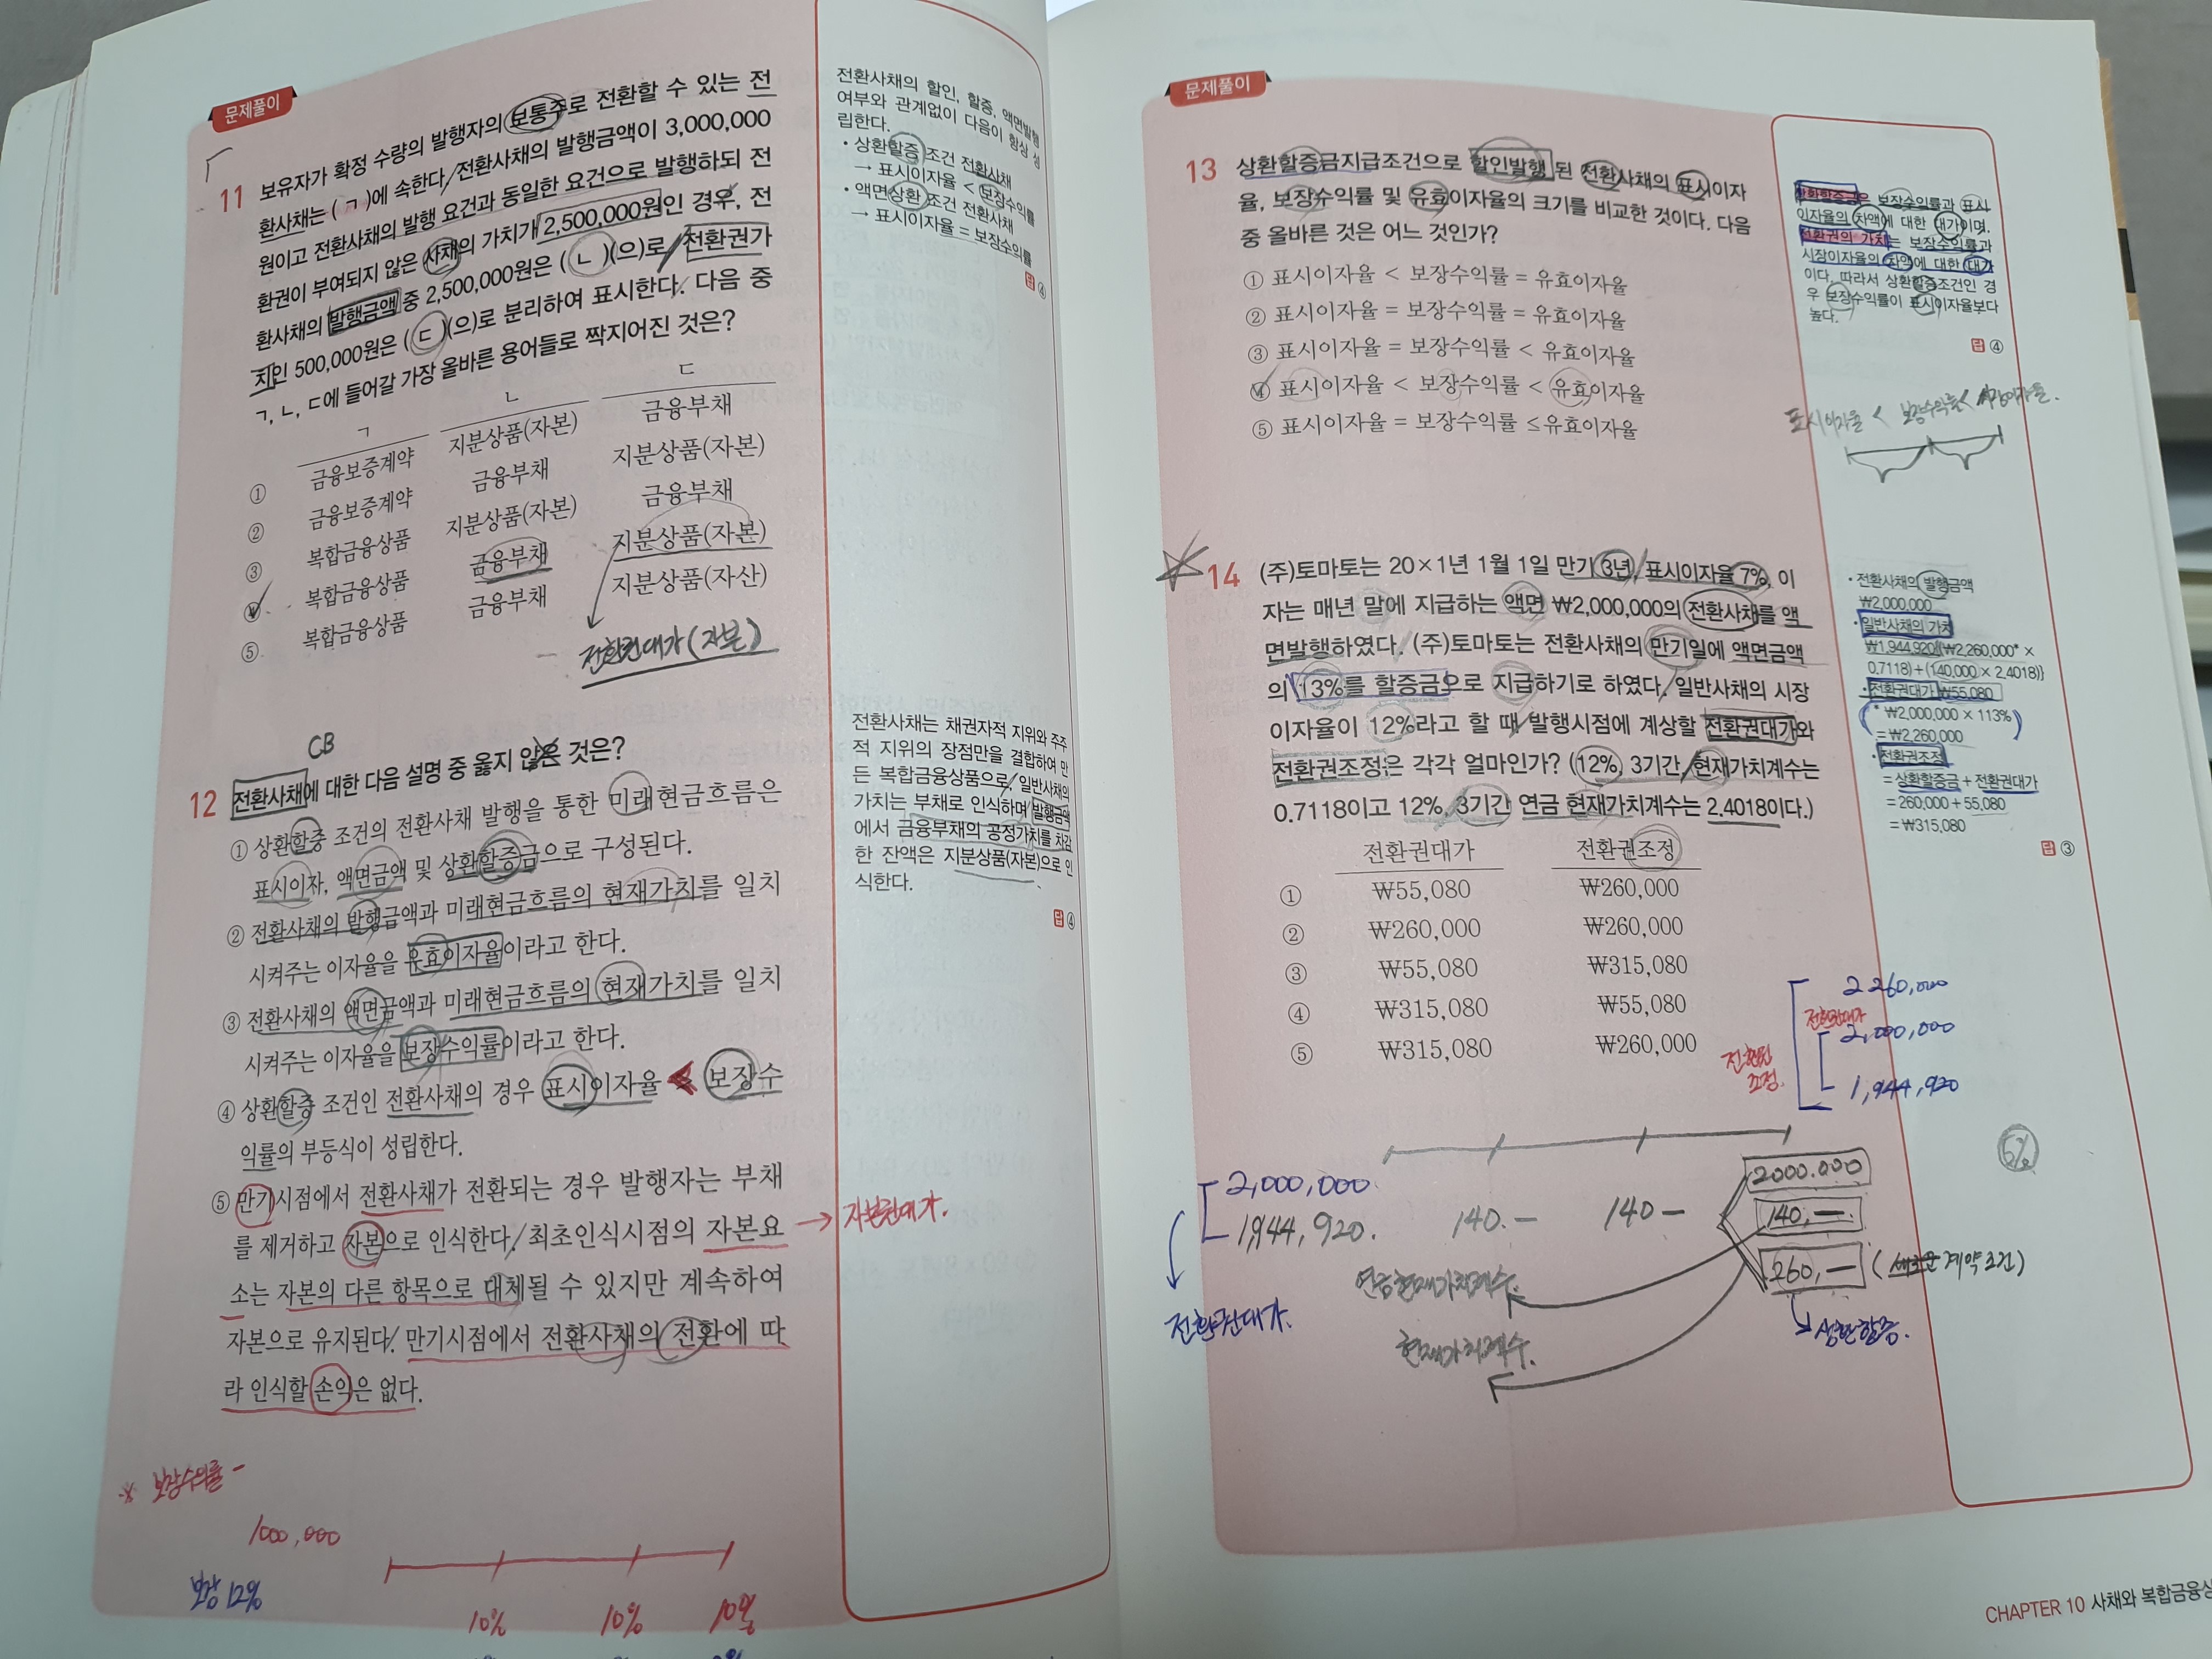 문제풀이
11 보유자가 확정 수량의 발행자의 보통주로 전환할 수 있는 전
환사채는 ( ㄱ )에 속한다. 전환사채의 발행금액이 3,000,000
원이고 전환사채의 발행 요건과 동일한 요건으로 발행하되 전
환권이 부여되지 않은 사채의 가치가 2,500,000원인 경우, 전
환사채의 발행금액 중 2,500,000원은 ( ㄴ )(으)로, 전환권가
치인 500,000원은 ( ㄷ )(으)로 분리하여 표시한다. 다음 중
ㄱ, ㄴ, ㄷ에 들어갈 가장 올바른 용어들로 짝지어진 것은?
ㄱ ㄴ ㄷ
① 금융보증계약 지분상품(자본) 금융부채
② 금융보증계약 금융부채 지분상품(자본)
③ 복합금융상품 지분상품(자본) 금융부채
④ 복합금융상품 금융부채 지분상품(자본)
⑤ 복합금융상품 금융부채 지분상품(자산)
전환권대가(자본)
전환사채의 할인, 할증, 액면발행
여부와 관계없이 다음이 항상 성
립한다.
• 상환할증 조건 전환사채
→ 표시이자율 < 보장수익률
• 액면상환 조건 전환사채
→ 표시이자율 = 보장수익률
답 ④
CB
12 전환사채에 대한 다음 설명 중 옳지 않은 것은?
① 상환할증 조건의 전환사채 발행을 통한 미래현금흐름은
표시이자, 액면금액 및 상환할증금으로 구성된다.
② 전환사채의 발행금액과 미래현금흐름의 현재가치를 일치
시켜주는 이자율을 유효이자율이라고 한다.
③ 전환사채의 액면금액과 미래현금흐름의 현재가치를 일치
시켜주는 이자율을 보장수익률이라고 한다.
④ 상환할증 조건인 전환사채의 경우 표시이자율 < 보장수
익률의 부등식이 성립한다.
⑤ 만기시점에서 전환사채가 전환되는 경우 발행자는 부채
를 제거하고 자본으로 인식한다. 최초인식시점의 자본요
소는 자본의 다른 항목으로 대체될 수 있지만 계속하여
자본으로 유지된다. 만기시점에서 전환사채의 전환에 따
라 인식할 손익은 없다.
→ 자본권대가.
전환사채는 채권자적 지위와 주주
적 지위의 장점만을 결합하여 만
든 복합금융상품으로, 일반사채의
가치는 부채로 인식하며 발행금액
에서 금융부채의 공정가치를 차감
한 잔액은 지분상품(자본)으로 인
식한다.
답 ④
※ 보장수익률 -
1000,000
보장 12%
10% 10% 10%
문제풀이
13 상환할증금지급조건으로 할인발행 된 전환사채의 표시이자
율, 보장수익률 및 유효이자율의 크기를 비교한 것이다. 다음
중 올바른 것은 어느 것인가?
① 표시이자율 < 보장수익률 = 유효이자율
② 표시이자율 = 보장수익률 = 유효이자율
③ 표시이자율 = 보장수익률 < 유효이자율
④ 표시이자율 < 보장수익률 < 유효이자율
⑤ 표시이자율 = 보장수익률 ≤ 유효이자율
상환할증금은 보장수익률과 표시
이자율의 차액에 대한 대가이며,
전환권의 가치는 보장수익률과
시장이자율의 차액에 대한 대가
이다. 따라서 상환할증조건인 경
우 보장수익률이 표시이자율보다
높다.
답 ④
표시이자율 < 보장수익률 < 시장이자율.
14 (주)토마토는 20×1년 1월 1일 만기 3년, 표시이자율 7%, 이
자는 매년 말에 지급하는 액면 ₩2,000,000의 전환사채를 액
면발행하였다. (주)토마토는 전환사채의 만기일에 액면금액
의 13%를 할증금으로 지급하기로 하였다. 일반사채의 시장
이자율이 12%라고 할 때, 발행시점에 계상할 전환권대가와
전환권조정은 각각 얼마인가? (12%, 3기간, 현재가치계수는
0.7118이고 12%, 3기간 연금 현재가치계수는 2.4018이다.)
전환권대가 전환권조정
① ₩55,080 ₩260,000
② ₩260,000 ₩260,000
③ ₩55,080 ₩315,080
④ ₩315,080 ₩55,080
⑤ ₩315,080 ₩260,000
• 전환사채의 발행금액
₩2,000,000
• 일반사채의 가치
₩1,944,920{(₩2,260,000* ×
0.7118) + (140,000 × 2.4018)}
• 전환권대가 ₩55,080
* ₩2,000,000 × 113%
= ₩2,260,000
• 전환권조정
= 상환할증금 + 전환권대가
= 260,000 + 55,080
= ₩315,080
답 ③
2260,000
전환권대가
2,000,000
전환권
조정.
1,944,920
5%
2,000,000
1,944,920.
전환권대가.
140.- 140-
2000.000
140,-
260,- (새로운 계약조건)
상환할증.
연금현재가치계수.
현재가치계수.
CHAPTER 10 사채와 복합금융상